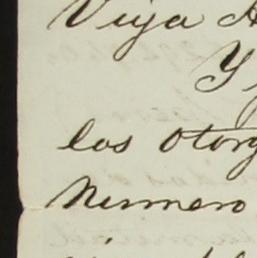 Vieja
Y
los otorg
Numero